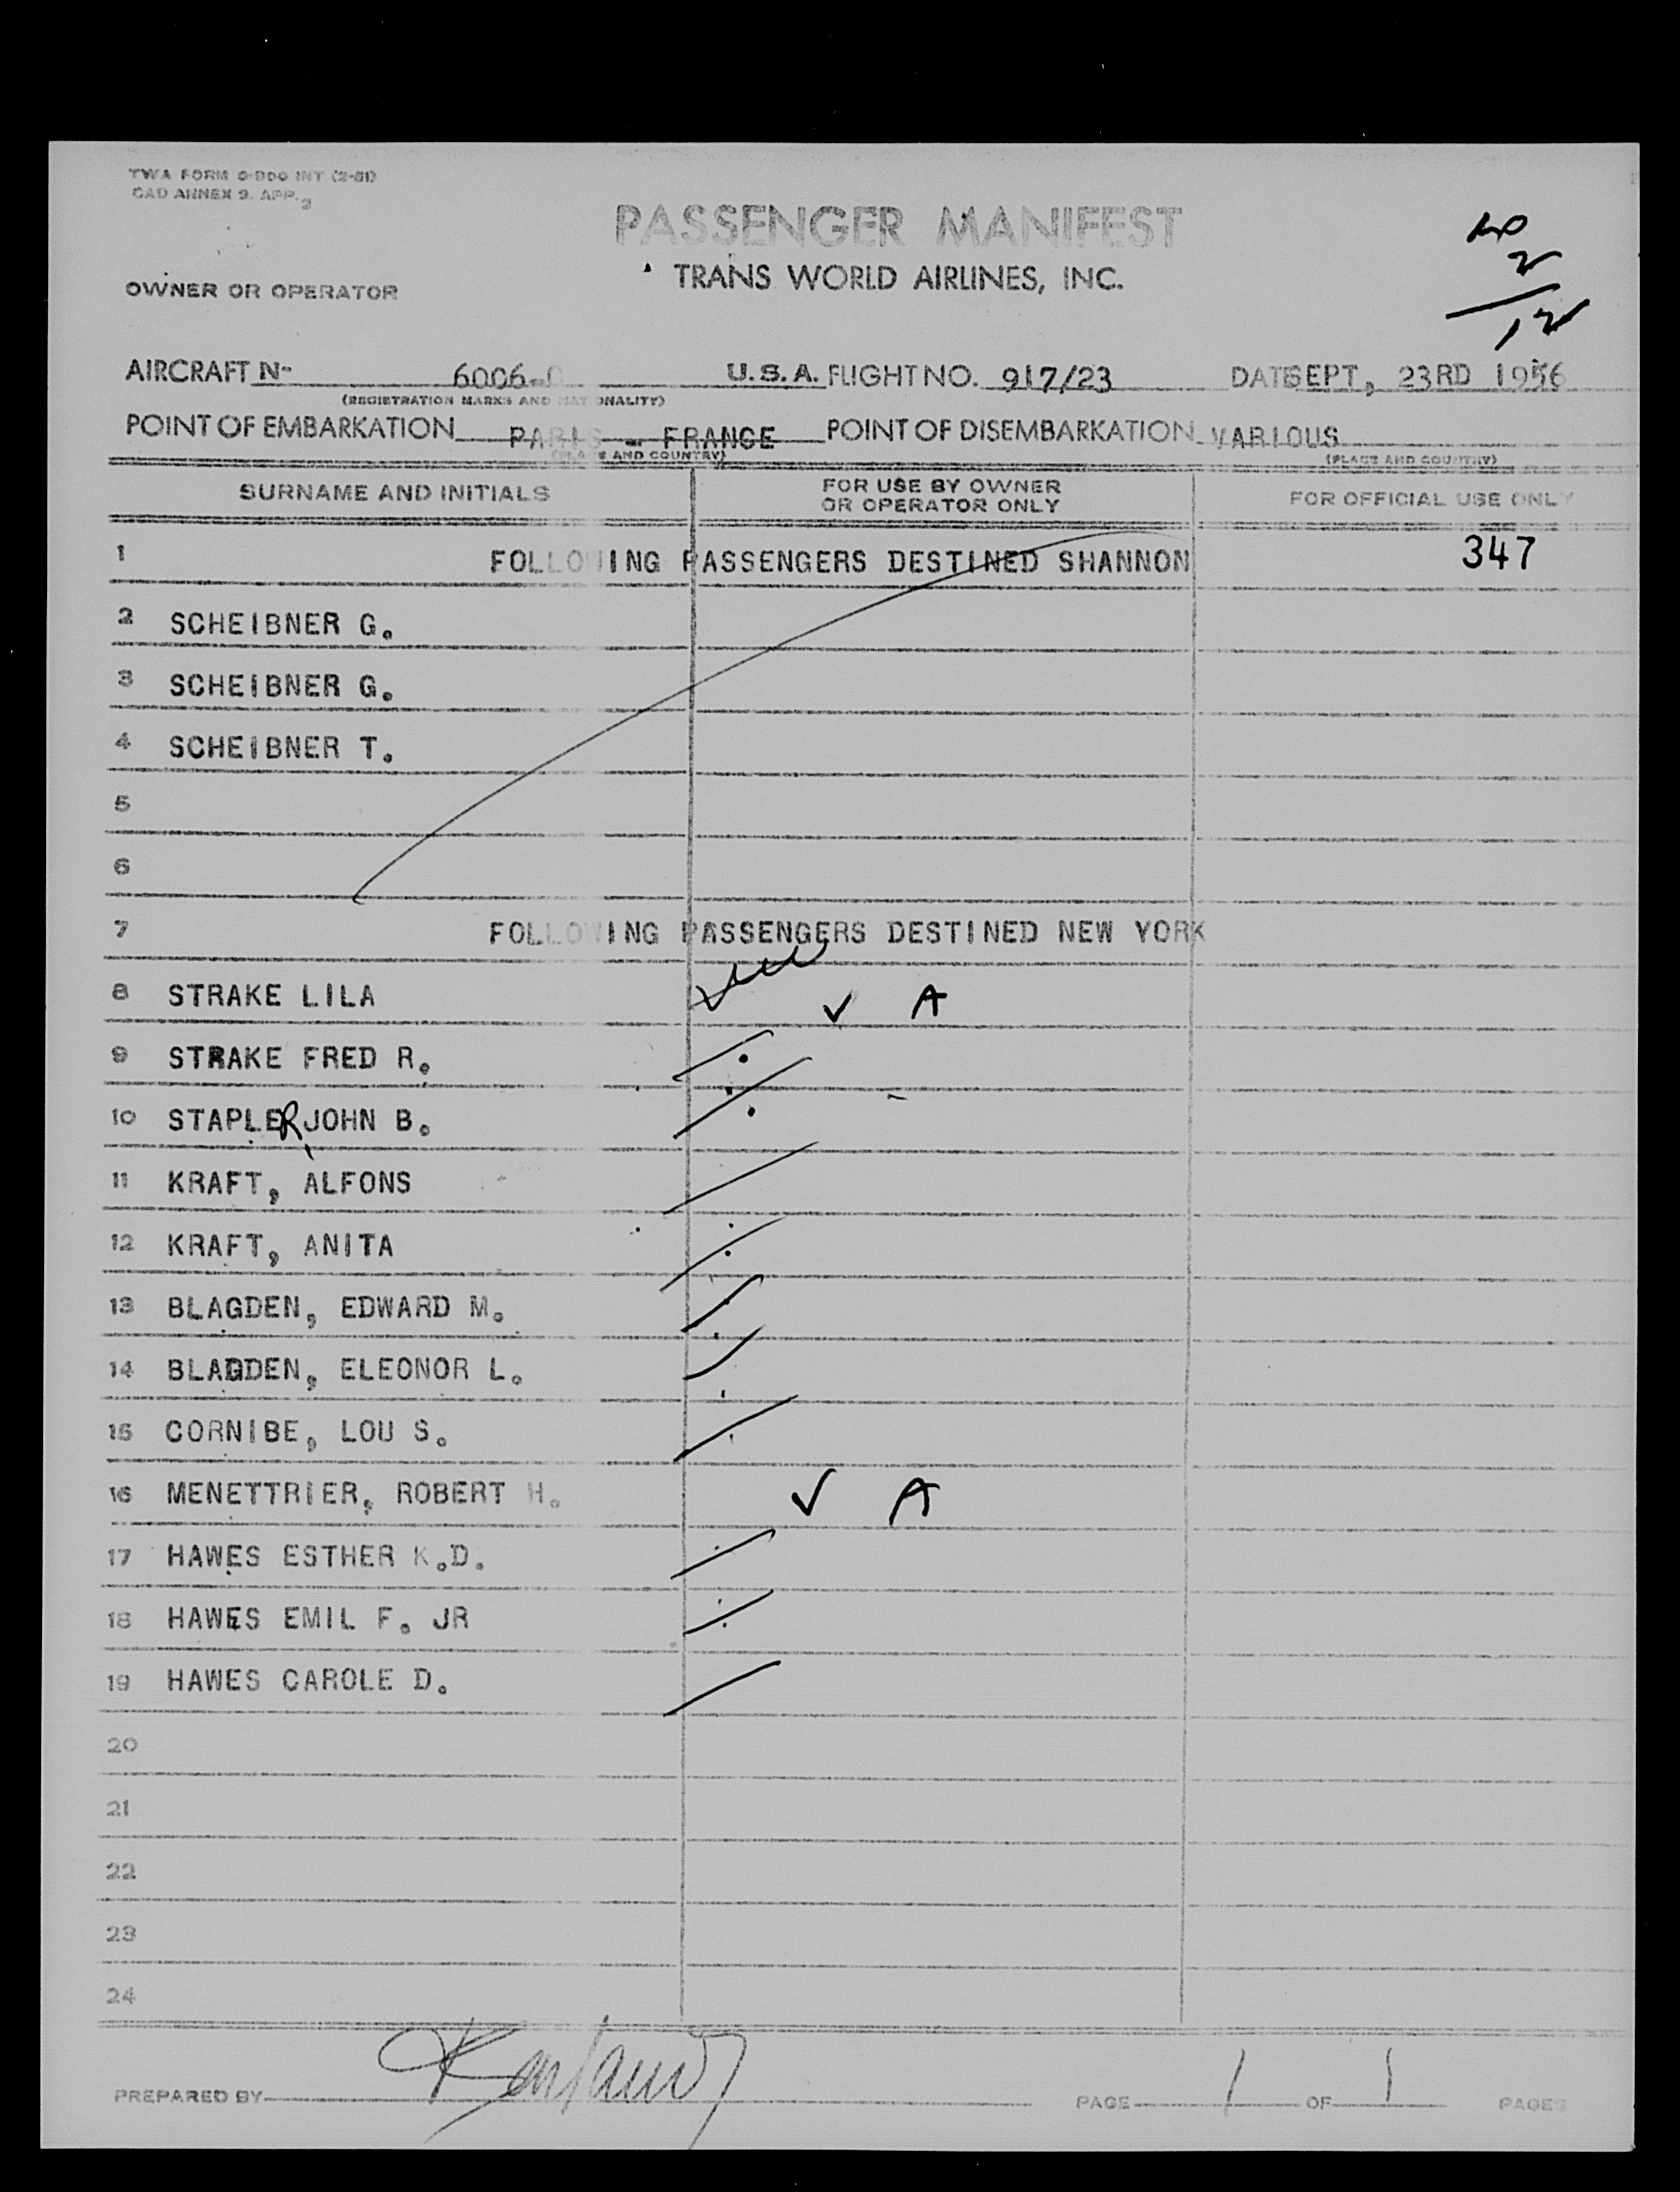 TWA FORM O-900 INT (2-51)
CAO ANNEX 9. APP. 3
PASSENGER MANIFEST
TRANS WORLD AIRLINES, INC.
OWNER OR OPERATOR
2
12
AIRCRAFT N- 6006-C U.S.A. FLIGHT NO. 917/23 DATE SEPT, 23RD 1956
(REGISTRATION MARKS AND NATIONALITY)
POINT OF EMBARKATION PARIS - FRANCE POINT OF DISEMBARKATION VARIOUS
(PLACE AND COUNTRY) (PLACE AND COUNTRY)
SURNAME AND INITIALS FOR USE BY OWNER OR OPERATOR ONLY FOR OFFICIAL USE ONLY
1 FOLLOWING PASSENGERS DESTINED SHANNON 347
2 SCHEIBNER G.
3 SCHEIBNER G.
4 SCHEIBNER T.
5
6
7 FOLLOWING PASSENGERS DESTINED NEW YORK
8 STRAKE LILA ✓ A
9 STRAKE FRED R.
10 STAPLER, JOHN B.
11 KRAFT, ALFONS
12 KRAFT, ANITA
13 BLAGDEN, EDWARD M.
14 BLAGDEN, ELEONOR L.
15 CORNIBE, LOU S.
16 MENETTRIER, ROBERT H. ✓ A
17 HAWES ESTHER K.D.
18 HAWES EMIL F. JR
19 HAWES CAROLE D.
20
21
22
23
24
PREPARED BY PAGE 1 OF 1 PAGES